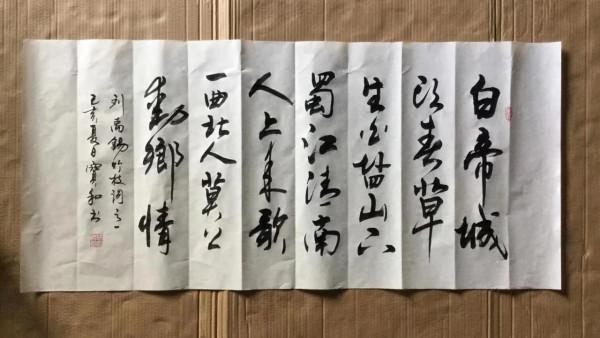 白帝城
头春草
生白盐山下
蜀江清南
人上来歌
一曲北人莫上
動鄉情
刘禹锡竹枝词之一
己亥夏日寶和书